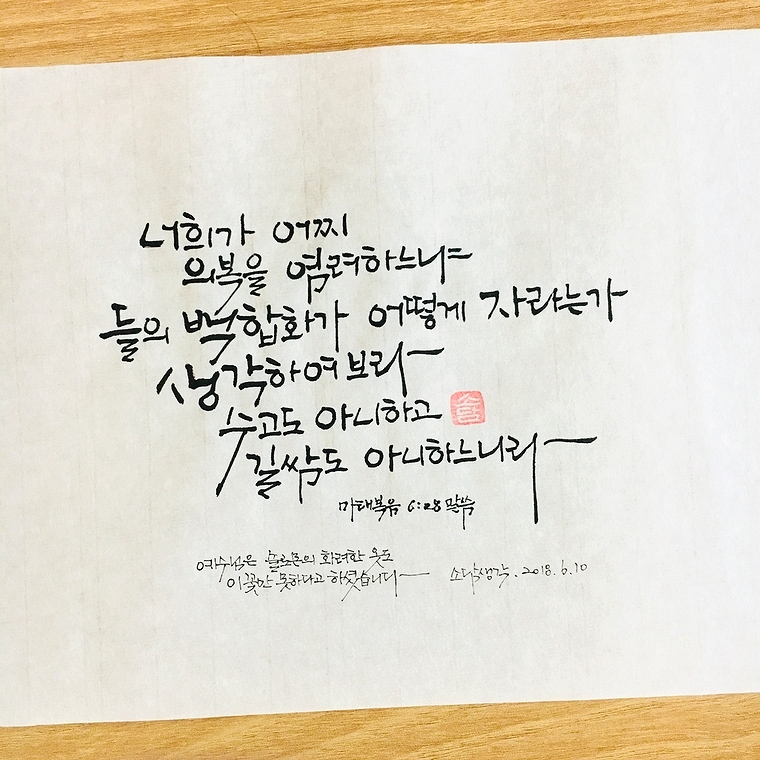 너희가 어찌
의복을 염려하느냐=
들의 백합화가 어떻게 자라는가
생각하여보라ー
수고도 아니하고
길쌈도 아니하느니라ー
마태복음 6:28 말씀
예수님은 솔로몬의 화려한 옷도
이 꽃만 못하다고 하셨습니다ー
소담생각. 2018. 6. 10
소담